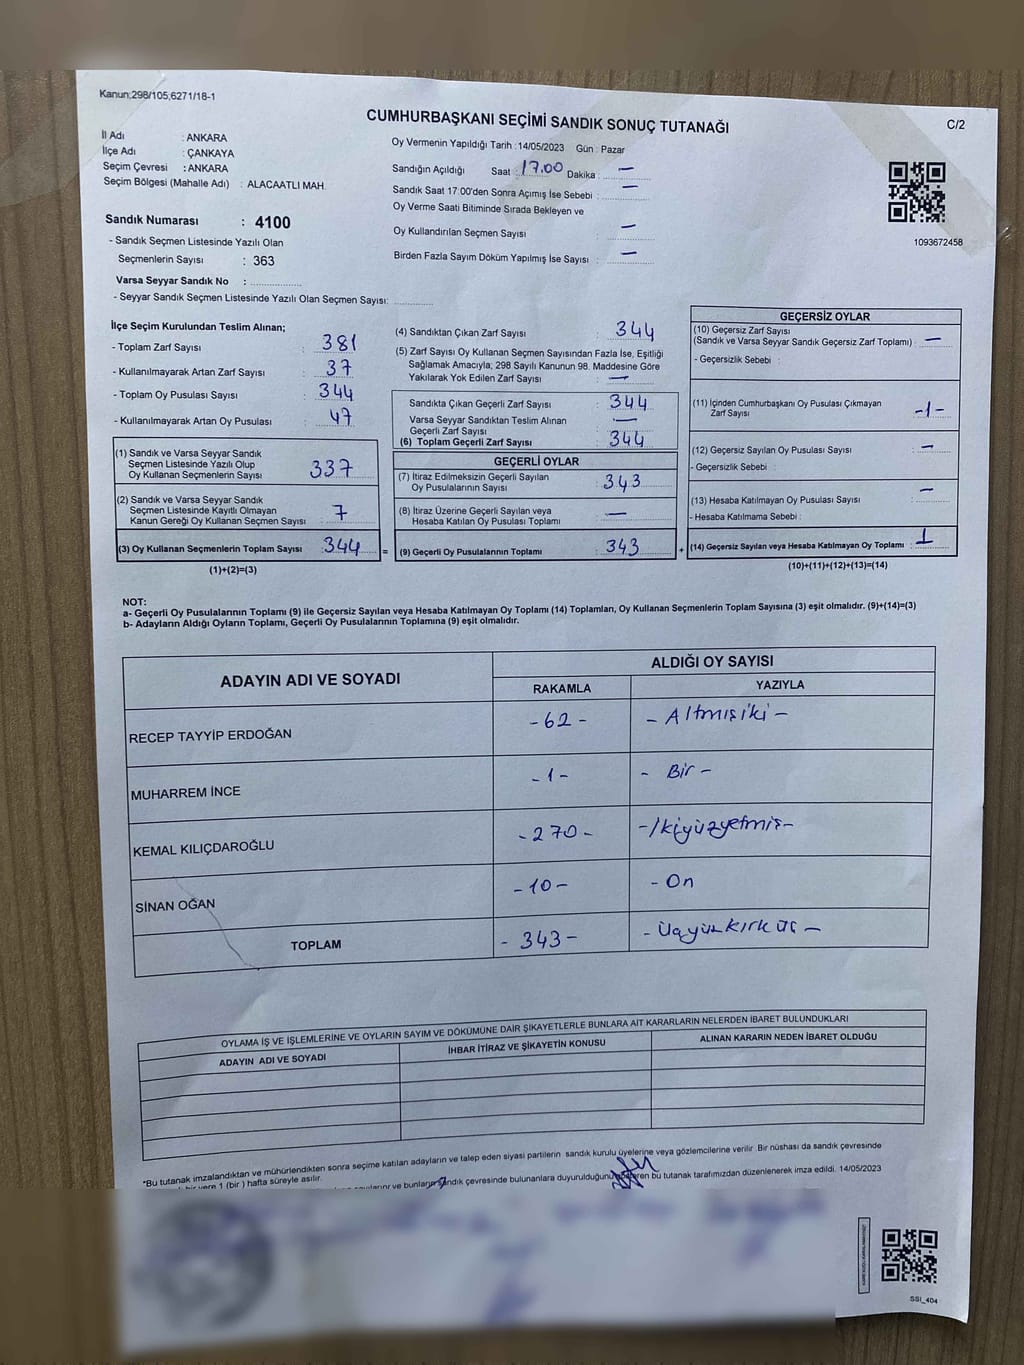 Kanun;298/105,6271/18-1
CUMHURBAŞKANI SEÇİMİ SANDIK SONUÇ TUTANAĞI
C/2
İl Adı : ANKARA
İlçe Adı : ÇANKAYA
Seçim Çevresi : ANKARA
Seçim Bölgesi (Mahalle Adı) : ALACAATLI MAH.
Sandık Numarası : 4100
- Sandık Seçmen Listesinde Yazılı Olan
Seçmenlerin Sayısı : 363
Varsa Seyyar Sandık No :
- Seyyar Sandık Seçmen Listesinde Yazılı Olan Seçmen Sayısı:
Oy Vermenin Yapıldığı Tarih : 14/05/2023 Gün : Pazar
Sandığın Açıldığı Saat : 17.00 Dakika : —
Sandık Saat 17:00'den Sonra Açımış İse Sebebi : —
Oy Verme Saati Bitiminde Sırada Bekleyen ve
Oy Kullandırılan Seçmen Sayısı : —
Birden Fazla Sayım Döküm Yapılmış İse Sayısı : —
1093672458
İlçe Seçim Kurulundan Teslim Alınan;
- Toplam Zarf Sayısı : 381
- Kullanılmayarak Artan Zarf Sayısı : 37
- Toplam Oy Pusulası Sayısı : 344
- Kullanılmayarak Artan Oy Pusulası : 47
(1) Sandık ve Varsa Seyyar Sandık
Seçmen Listesinde Yazılı Olup
Oy Kullanan Seçmenlerin Sayısı : 337
(2) Sandık ve Varsa Seyyar Sandık
Seçmen Listesinde Kayıtlı Olmayan
Kanun Gereği Oy Kullanan Seçmen Sayısı : 7
(3) Oy Kullanan Seçmenlerin Toplam Sayısı : 344
(1)+(2)=(3)
(4) Sandıktan Çıkan Zarf Sayısı : 344
(5) Zarf Sayısı Oy Kullanan Seçmen Sayısından Fazla İse, Eşitliği
Sağlamak Amacıyla; 298 Sayılı Kanunun 98. Maddesine Göre
Yakılarak Yok Edilen Zarf Sayısı : —
Sandıkta Çıkan Geçerli Zarf Sayısı : 344
Varsa Seyyar Sandıktan Teslim Alınan
Geçerli Zarf Sayısı : —
(6) Toplam Geçerli Zarf Sayısı : 344
GEÇERLİ OYLAR
(7) İtiraz Edilmeksizin Geçerli Sayılan
Oy Pusulalarının Sayısı : 343
(8) İtiraz Üzerine Geçerli Sayılan veya
Hesaba Katılan Oy Pusulası Toplamı : —
= (9) Geçerli Oy Pusulalarının Toplamı : 343
GEÇERSİZ OYLAR
(10) Geçersiz Zarf Sayısı
(Sandık ve Varsa Seyyar Sandık Geçersiz Zarf Toplamı) : —
- Geçersizlik Sebebi :
(11) İçinden Cumhurbaşkanı Oy Pusulası Çıkmayan
Zarf Sayısı : -1-
(12) Geçersiz Sayılan Oy Pusulası Sayısı : —
- Geçersizlik Sebebi :
(13) Hesaba Katılmayan Oy Pusulası Sayısı : —
- Hesaba Katılmama Sebebi :
+ (14) Geçersiz Sayılan veya Hesaba Katılmayan Oy Toplamı : 1
(10)+(11)+(12)+(13)=(14)
NOT:
a- Geçerli Oy Pusulalarının Toplamı (9) ile Geçersiz Sayılan veya Hesaba Katılmayan Oy Toplamı (14) Toplamları, Oy Kullanan Seçmenlerin Toplam Sayısına (3) eşit olmalıdır. (9)+(14)=(3)
b- Adayların Aldığı Oyların Toplamı, Geçerli Oy Pusulalarının Toplamına (9) eşit olmalıdır.
ADAYIN ADI VE SOYADI ALDIĞI OY SAYISI
RAKAMLA YAZIYLA
RECEP TAYYİP ERDOĞAN -62- - Altmışiki -
MUHARREM İNCE -1- - Bir -
KEMAL KILIÇDAROĞLU -270- - İkiyüzyetmiş -
SİNAN OĞAN -10- - On
TOPLAM -343- - Üçyüzkırküç -
OYLAMA İŞ VE İŞLEMLERİNE VE OYLARIN SAYIM VE DÖKÜMÜNE DAİR ŞİKAYETLERLE BUNLARA AİT KARARLARIN NELERDEN İBARET BULUNDUKLARI
ADAYIN ADI VE SOYADI İHBAR İTİRAZ VE ŞİKAYETİN KONUSU ALINAN KARARIN NEDEN İBARET OLDUĞU
*Bu tutanak imzalandıktan ve mühürlendikten sonra seçime katılan adayların ve talep eden siyasi partilerin sandık kurulu üyelerine veya gözlemcilerine verilir. Bir nüshası da sandık çevresinde
1 (bir ) hafta süreyle asılır.
ve bunların sandık çevresinde bulunanlara duyurulduğunu bu tutanak tarafımızdan düzenlenerek imza edildi. 14/05/2023
SSI_404